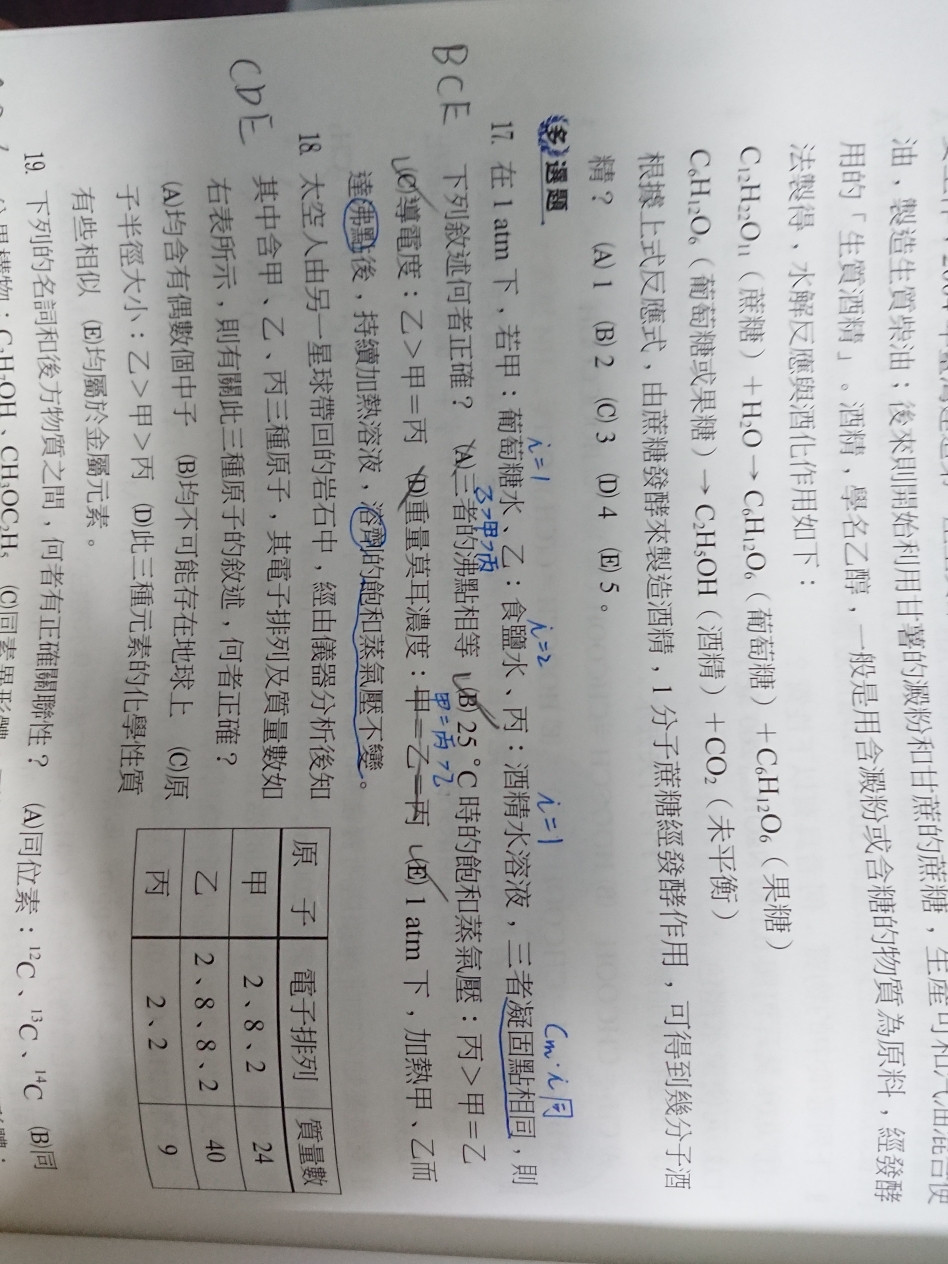 油，製造生質柴油；後來則開始利用甘薯的澱粉和甘蔗的蔗糖，生產可和汽油混合使
用的「生質酒精」。酒精，學名乙醇，一般是用含澱粉或含糖的物質為原料，經發酵
法製得，水解反應與酒化作用如下：
C₁₂H₂₂O₁₁（蔗糖）＋H₂O → C₆H₁₂O₆（葡萄糖）＋C₆H₁₂O₆（果糖）
C₆H₁₂O₆（葡萄糖或果糖）→ C₂H₅OH（酒精）＋CO₂（未平衡）
根據上式反應式，由蔗糖發酵來製造酒精，1 分子蔗糖經發酵作用，可得到幾分子酒
精？ (A) 1 (B) 2 (C) 3 (D) 4 (E) 5。
多選題
i=1 i=2 i=1 Cm·i 同
BCE 17. 在 1 atm 下，若甲：葡萄糖水、乙：食鹽水、丙：酒精水溶液，三者凝固點相同，則
乙>甲>丙
下列敘述何者正確？ (A)三者的沸點相等 (B) 25 °C 時的飽和蒸氣壓：丙＞甲＝乙
甲=丙>乙
(C)導電度：乙＞甲＝丙 (D)重量莫耳濃度：甲＝乙＝丙 (E) 1 atm 下，加熱甲、乙而
達沸點後，持續加熱溶液，溶劑的飽和蒸氣壓不變。
CDE 18. 太空人由另一星球帶回的岩石中，經由儀器分析後知
其中含甲、乙、丙三種原子，其電子排列及質量數如
右表所示，則有關此三種原子的敘述，何者正確？
(A)均含有偶數個中子 (B)均不可能存在地球上 (C)原
子半徑大小：乙＞甲＞丙 (D)此三種元素的化學性質
有些相似 (E)均屬於金屬元素。
原 子 電子排列 質量數
甲 2、8、2 24
乙 2、8、8、2 40
丙 2、2 9
19. 下列的名詞和後方物質之間，何者有正確關聯性？ (A)同位素：¹²C、¹³C、¹⁴C (B)同